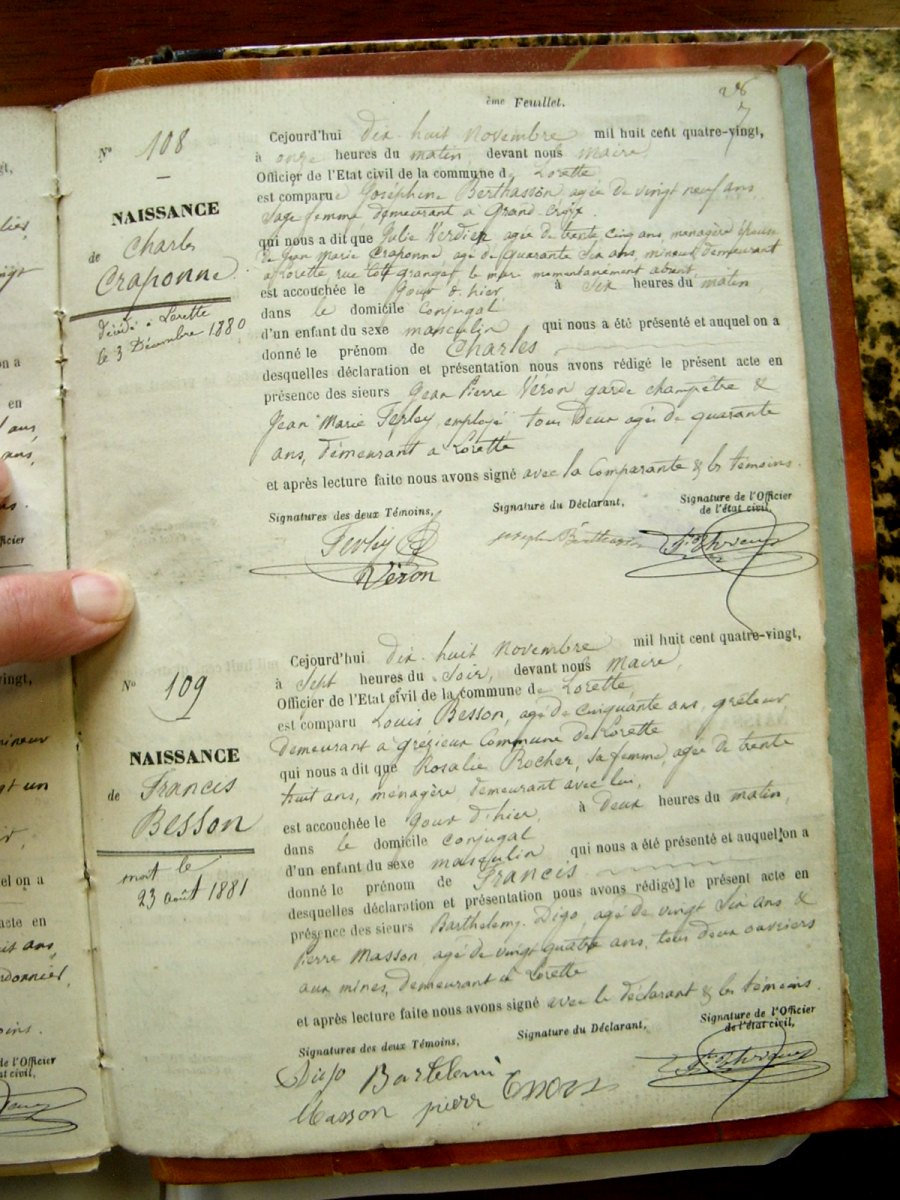 ème Feuillet.
26
7
N° 108
NAISSANCE
de Charles
Craponne
décédé à Lorette
le 3 Décembre 1880
Cejourd'hui dix-huit Novembre mil huit cent quatre-vingt,
à onze heures du matin devant nous Maire
Officier de l'Etat civil de la commune de Lorette
est comparue Joséphine Berthasson agée de vingt neuf ans
Sage femme demeurant à Grand Croix.
qui nous a dit que Julie Verdier agée de trente cinq ans, managère Épouse
de Jean Marie Craponne agé de quarante six ans, mineur demeurant
à Lorette rue Côte granget le mari momentanément absent,
est accouchée le jour d'hier à six heures du matin,
dans le domicile conjugal
d'un enfant du sexe masculin qui nous a été présenté et auquel on a
donné le prénom de Charles
desquelles déclaration et présentation nous avons rédigé le présent acte en
présence des sieurs Jean Pierre Véron garde champêtre &
Jean Marie Ferley, employé, tous deux agés de quarante
ans, demeurant a Lorette
et après lecture faite nous avons signé avec la Comparante & les témoins.
Signatures des deux Témoins, Signature du Déclarant, Signature de l'Officier
de l'état civil,
Ferley
Véron
N° 109
NAISSANCE
de Francis
Besson
mort le
23 août 1881
Cejourd'hui dix-huit Novembre mil huit cent quatre-vingt,
à Sept heures du Soir, devant nous Maire,
Officier de l'Etat civil de la commune de Lorette,
est comparu Louis Besson, agé de cinquante ans, greleur
demeurant à grézieux Commune de Lorette
qui nous a dit que Rosalie Rocher, sa femme, agée de trente
huit ans, menagère demeurant avec lui,
est accouchée le jour d'hier, à deux heures du matin,
dans le domicile conjugal
d'un enfant du sexe masculin qui nous a été présenté et auquel on a
donné le prénom de Francis
desquelles déclaration et présentation nous avons rédigé le présent acte en
présence des sieurs Barthelemy Digo, agé de vingt six ans &
Pierre Masson agé de vingt quatre ans, tous deux ouvriers
aux mines, demeurant à Lorette
et après lecture faite nous avons signé avec le déclarant & les témoins.
Signatures des deux Témoins, Signature du Déclarant, Signature de l'Officier
de l'état civil,
Digo Bartelemi
Masson pierr